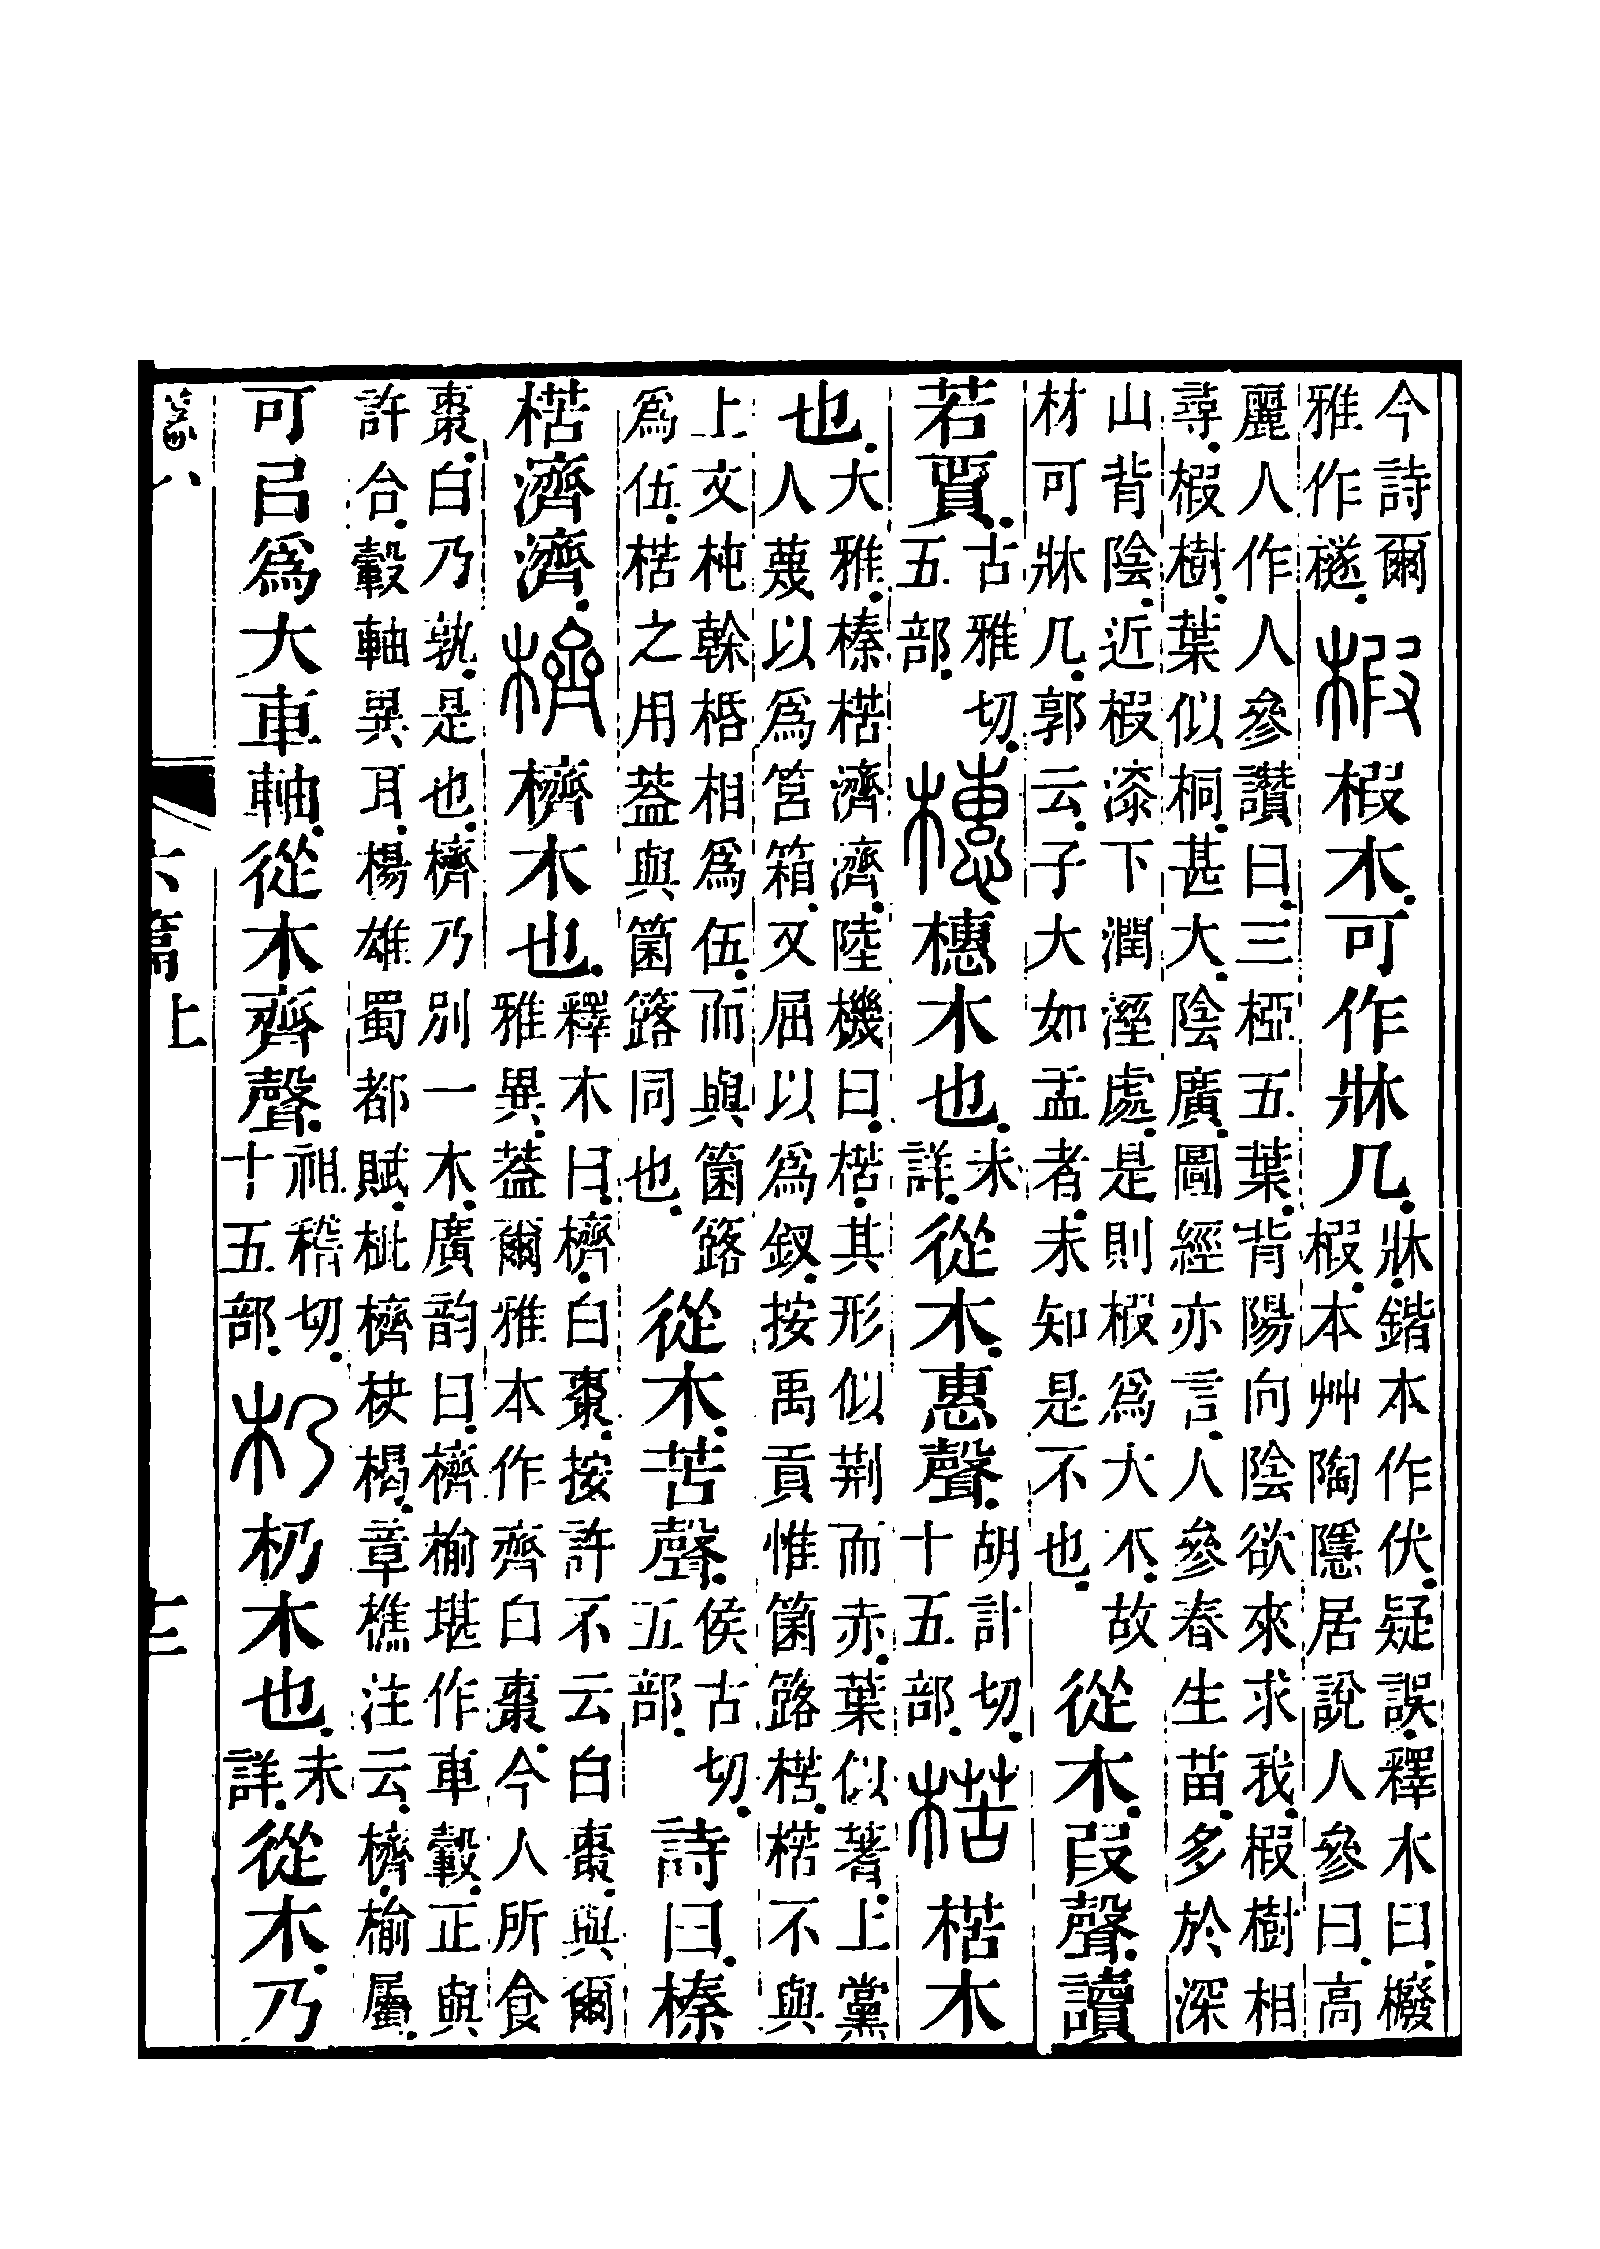 今詩爾
雅作檖。
椵 椵木。可作牀几。
牀。鍇本作伏。疑誤。釋木曰。櫠
椵。本艸陶隱居說人參曰。高
麗人作人參讚曰。三椏五葉。背陽向陰欲來求我。椵樹相
尋。椵樹。葉似桐。甚大。陰廣。圖經亦言。人參春生苗。多於深
山背陰。近椵漆下潤溼處。是則椵爲大木。故
材可牀几。郭云。子大如盂者。未知是不也。
從木。叚聲。讀
若賈。
古雅切。
五部。
橞 橞木也。
未
詳。
從木。惠聲。
胡計切。
十五部。
楛 楛木
也。
大雅。榛楛濟濟。陸機曰。楛。其形似荆而赤。葉似蓍。上黨
人蔑以爲筥箱。又屈以爲釵。按禹貢惟箘簬楛。楛不與
上文杶榦桰相爲伍。而與箘簬
爲伍。楛之用蓋與箘簬同也。
從木。苦聲。
侯古切。
五部。
詩曰。榛
楛濟濟。
櫅 櫅木也。
釋木曰。櫅。白棗。按許不云白棗。與爾
雅異。蓋爾雅本作齊白棗。今人所食
棗。白乃孰。是也。櫅乃別一木。廣韵曰。櫅榆堪作車轂。正與
許合。轂軸異耳。楊雄蜀都賦。枇櫅柍楬。章樵注云。櫅。榆屬。
可㠯爲大車軸。從木齊聲。
祖稽切。
十五部。
木也。
未
詳。
從木。乃
六篇上